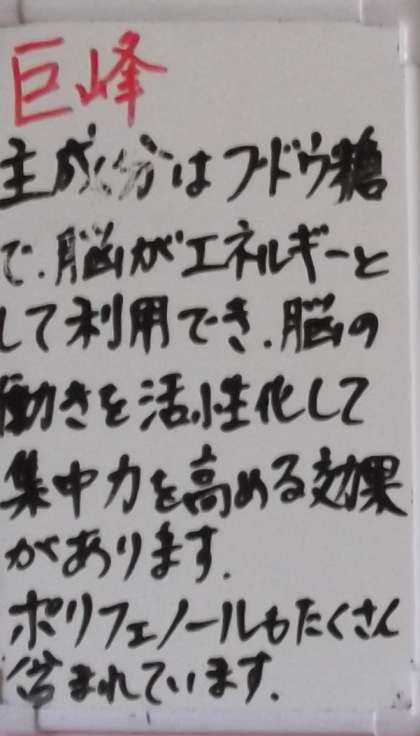 巨峰
主成分はブドウ糖
で、脳がエネルギーと
して利用でき、脳の
働きを活性化して
集中力を高める効果
があります。
ポリフェノールもたくさん
含まれています。